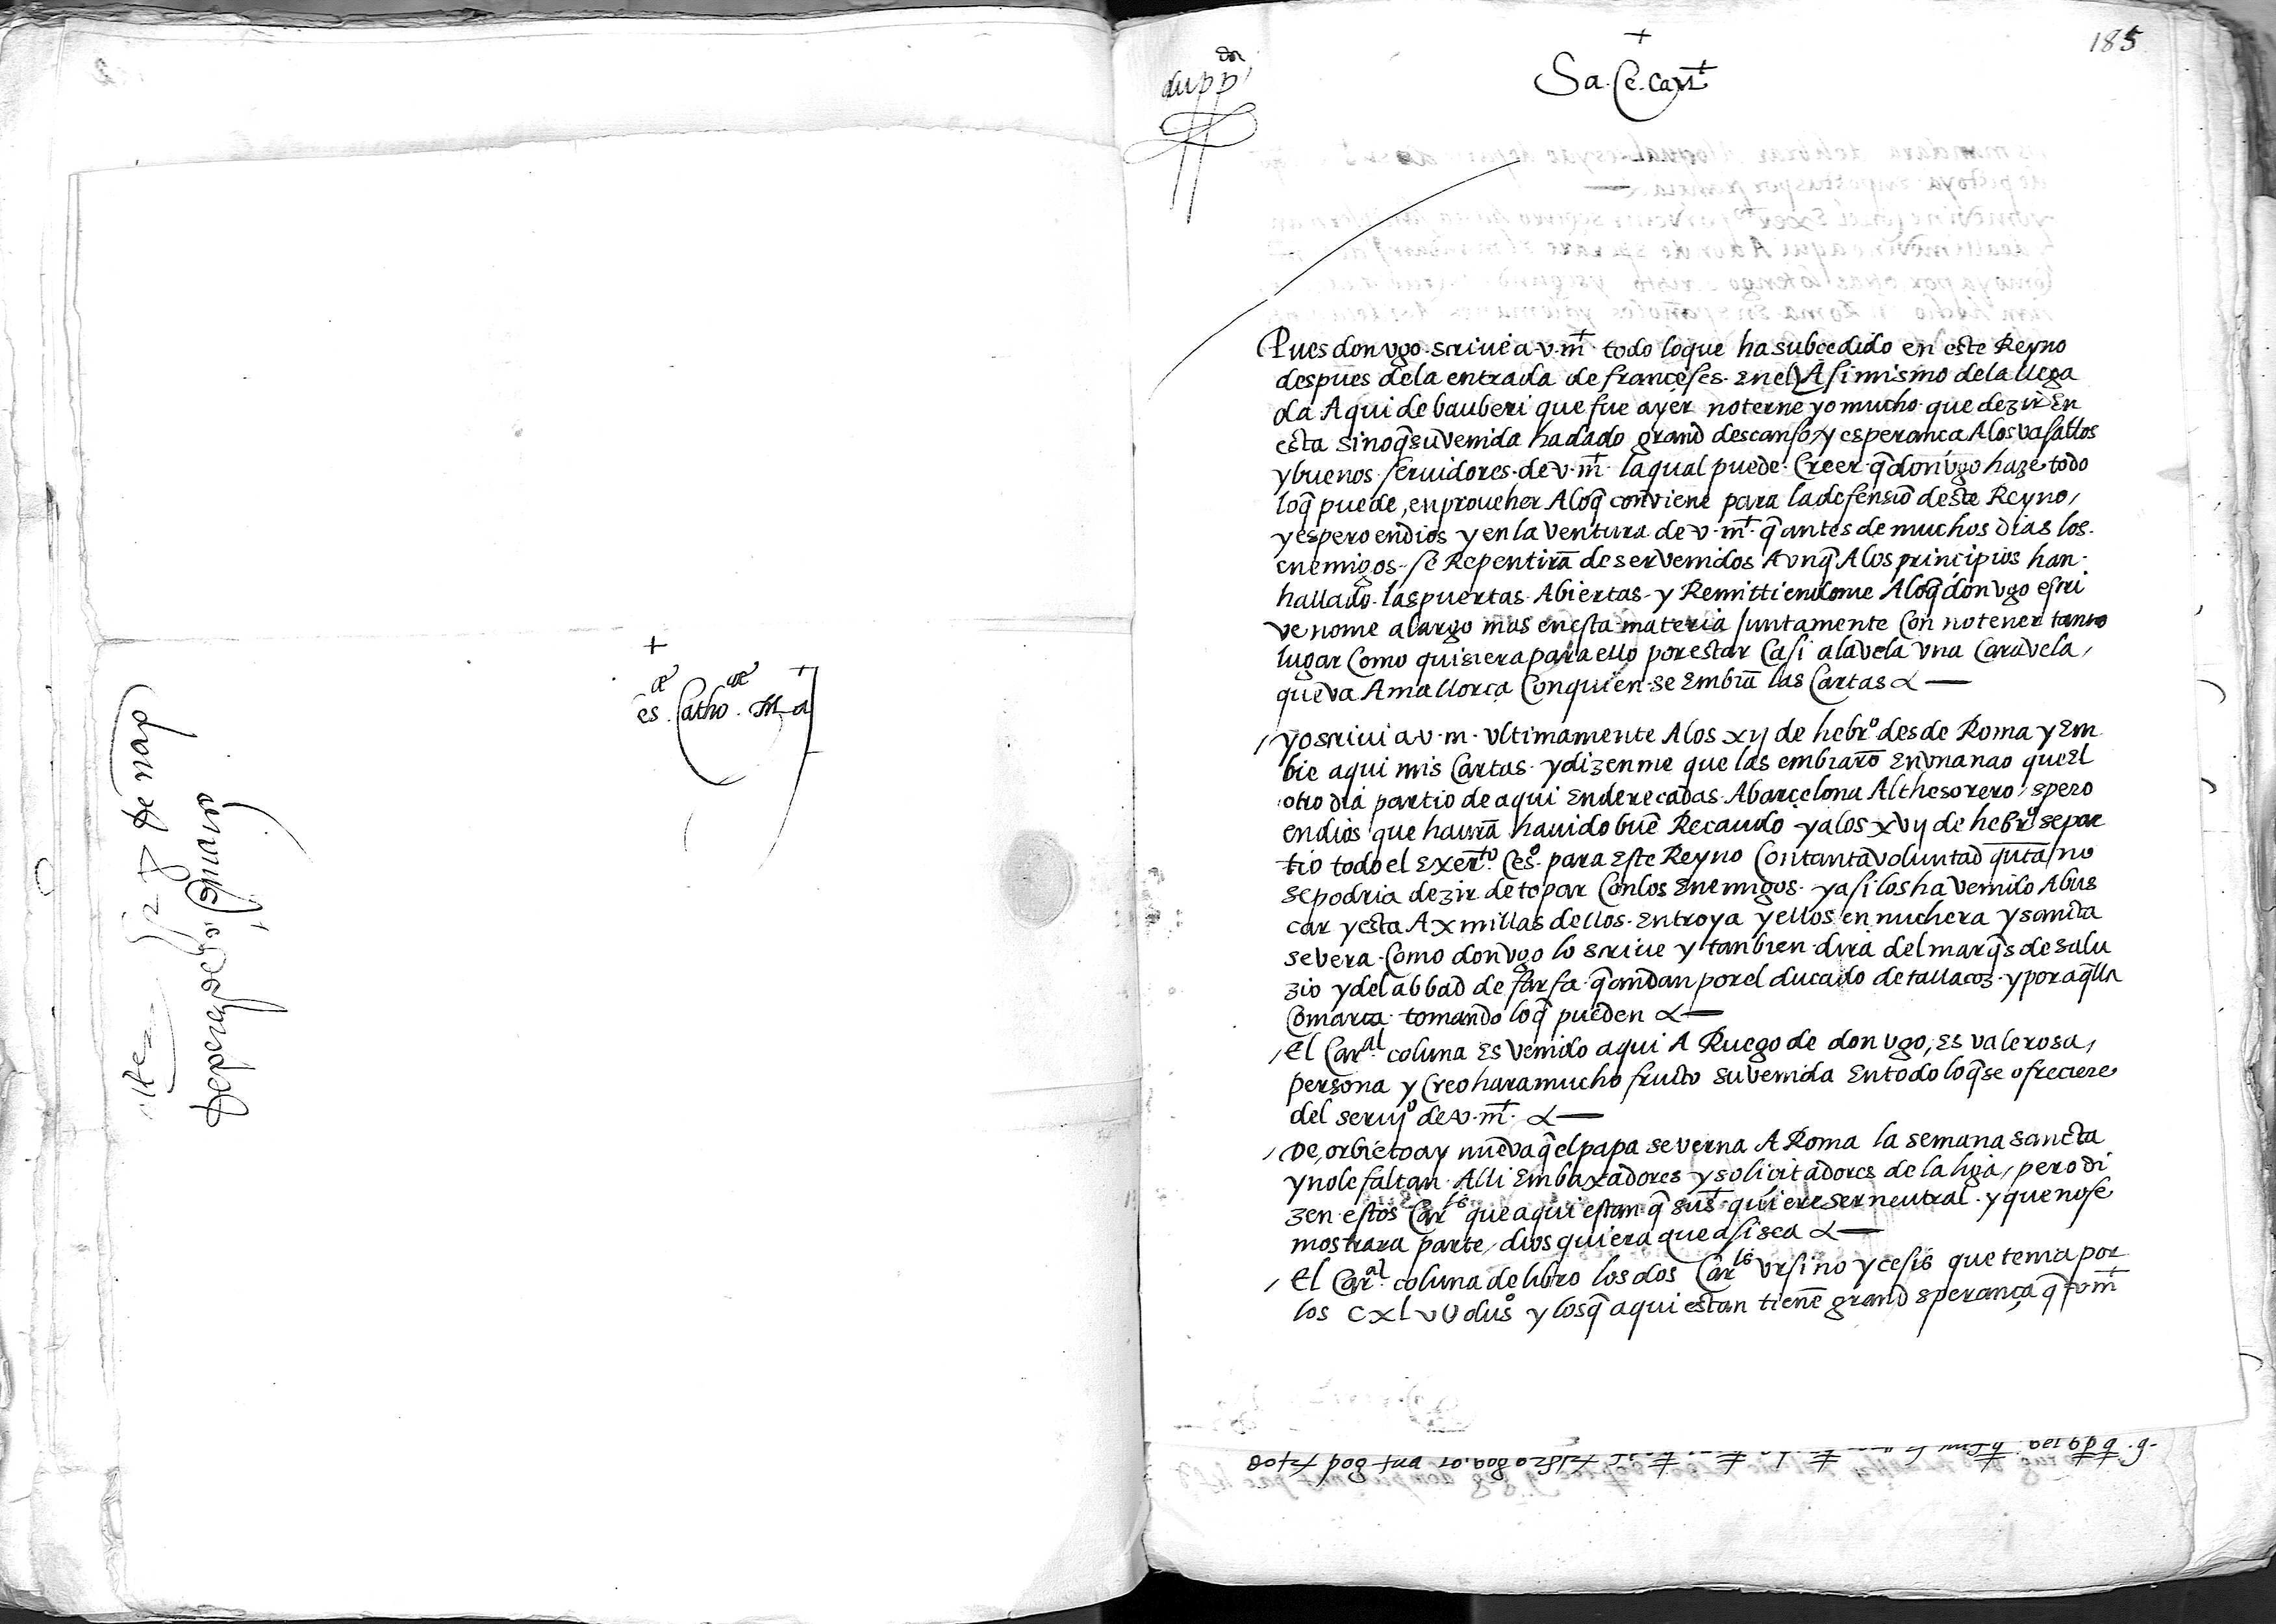 +
es. Catho. M.a
185
+
dupp.da
Sa. Ce. Cat. mt
Pues don ugo scrive a v. mt. todo lo que ha subcedido en este Reyno
despues dela entrada de françeses enel Asimismo dela llega
da Aqui de bauberi que fue ayer no terne yo mucho que dezir En
esta sino q̄ su venida ha dado grand descanso y esperança Alos vasallos
y buenos servidores de v. mt. la qual puede Creer q̄ don ugo haze todo
loq̄ puede, en proveher Aloq̄ conviene para la defensiō deste Reyno,
y espero en dios y en la ventura de v. mt. q̄ antes de muchos dias los
enemigos se Repentirā de ser venidos Avnq̄ Alos principios han
hallado las puertas Abiertas y Remittiendome Aloq̄ don ugo escri
ve no me alargo mas en esta materia Juntamente Con no tener tanto
lugar Como quisiera para ello por estar Casi ala vela vna Caravela,
que va A mallorca Con quien se Embiā las Cartas &—
/ yo scrivi a v. m. vltimamente Alos xij de hebr.o desde Roma y Em
bie aqui mis Cartas y dizenme que las embiarō En vna nao quel
otro dia partio de aqui Endereçadas A barçelona Al thesorero, spero
en dios que havrā havido buē Recaudo y alos xvij de hebr.o se par
tio todo el Exer.to Ces.o para Este Reyno Con tanta voluntad q̄nta no
se podria dezir de topar Con los Enemigos y asi los ha venido A bus
car y esta A x millas dellos En troya y ellos en nuchera y sancta
severa Como don ugo lo scrive y tanbien dira del marq̄s de salu
zio y del abbad de farfa q̄ andan por el ducado de tallacoz y por aq̄lla
Comarca tomando loq̄ pueden &—
/ El Car.al coluna Es venido aqui A Ruego de don ugo, Es valerosa,
persona y Creo hara mucho fructo su venida En todo loq̄ se ofreciere
del servi.o de v. mt. &—
/ De orbieto ay nueva q̄ el papa se verna A Roma la semana sancta
y no le faltan Alli Embaxadores y soliçitadores de la liga, pero di
zen estos Car.les que aqui estan q̄ su s.t quiere ser neutral y que no se
mostrara parte, dios quiera que asi sea &—
/ El Car.al coluna delibro los dos Car.les vrsino y cesis que tenia por
los cxlvU du.os y losq̄ aqui estan tienē grand sperança q̄ v. mt